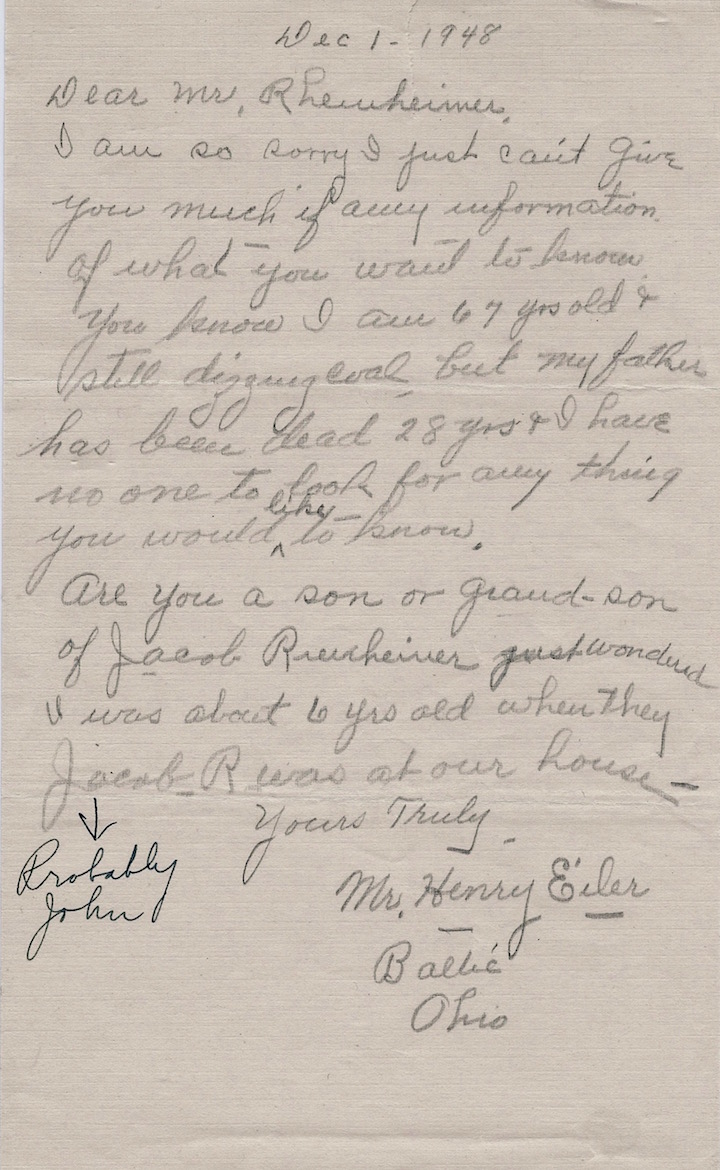 Dec 1 - 1948
Dear Mr, Rheinheimer,
I am so sorry I just can't Give
you much if any information
of what you want to know.
You know I am 67 yrs old &
still digging coal but my father
has been dead 28 yrs & I have
no one to look for any thing
you would like to know.
Are you a son or grand-son
of Jacob Rheinheimer just wondered
I was about 6 yrs old when they
Jacob R was at our house -
Yours Truly
Mr. Henry Eiler
Baltic
Ohio
Probably
John